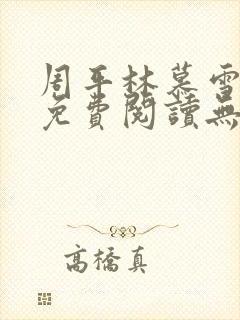 周平林慕雪
免費閱讀無
高橋真